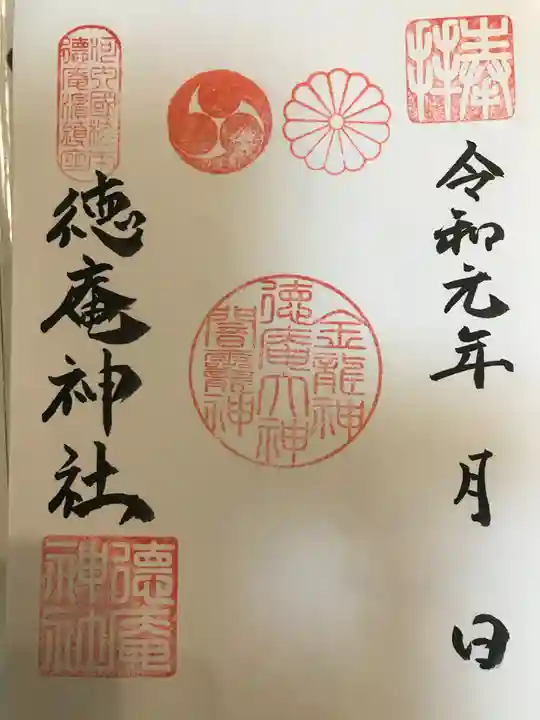 奉拝
令和元年 月 日
金龍神
徳庵大神
闇龗神
徳庵神社
徳庵神社